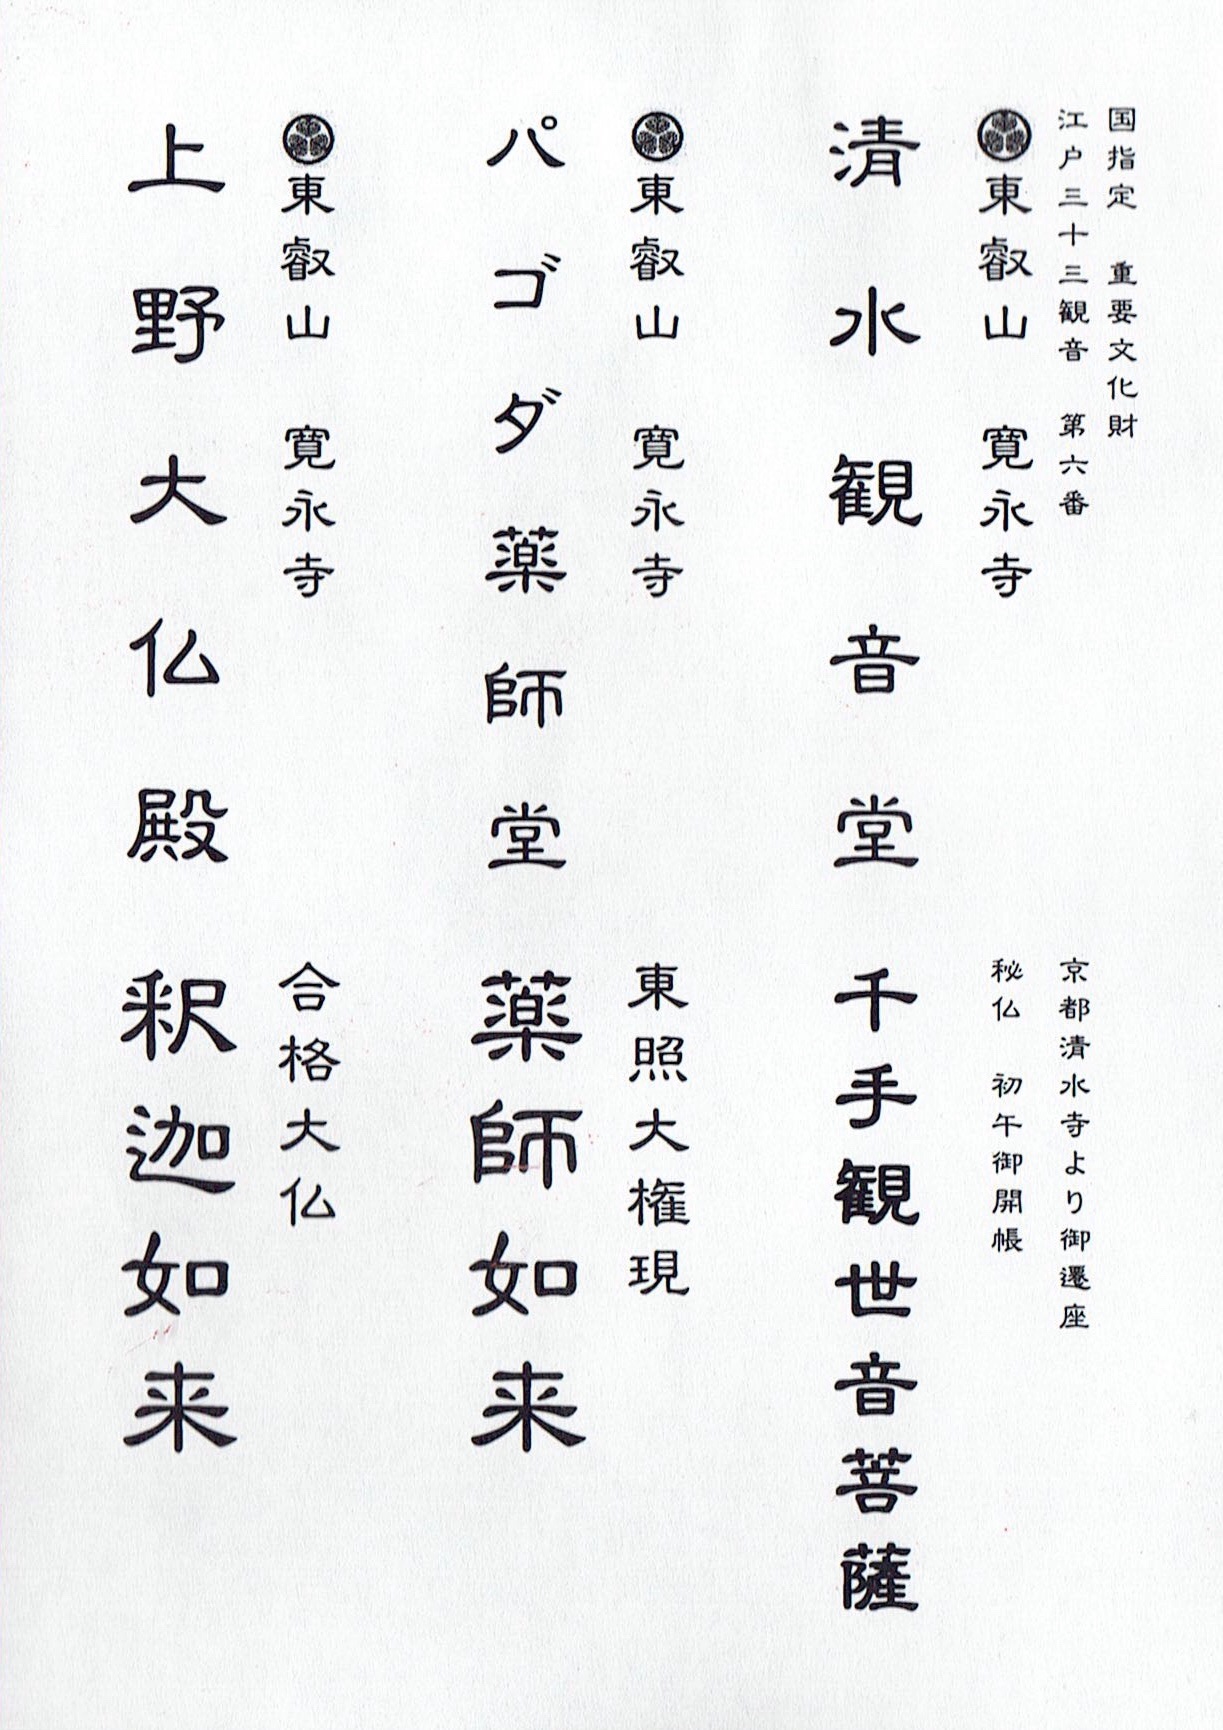 国指定　重要文化財
江戸三十三観音　第六番
東叡山　寛永寺
清水観音堂
京都清水寺より御遷座
秘仏　初午御開帳
千手観世音菩薩
東叡山　寛永寺
パゴダ薬師堂
東照大権現
薬師如来
東叡山　寛永寺
上野大仏殿
合格大仏
釈迦如来